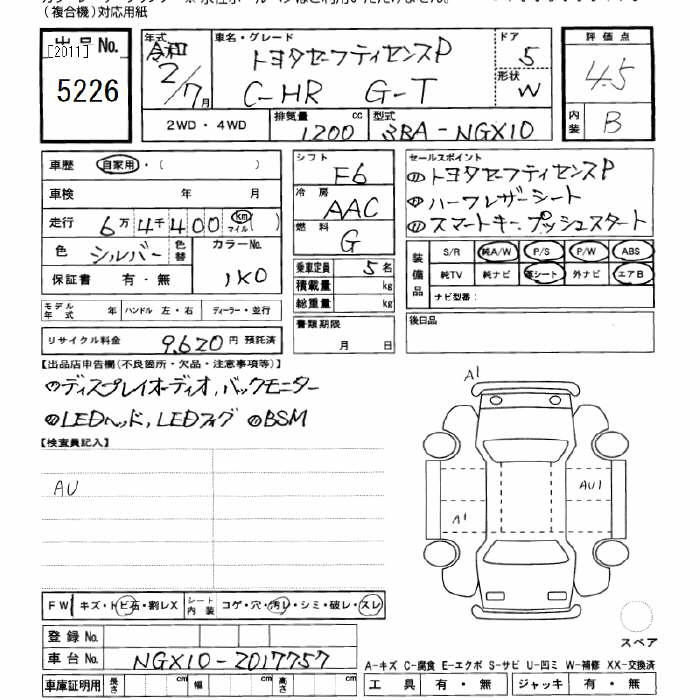 (複合機)対応用紙
出品No. [2011] 5226
年式 令和 2/7月
車名・グレード トヨタセーフティセンスP
C-HR G-T
ドア 5
形状 W
評価点 4.5
内装 B
2WD・4WD
排気量 1200 cc
型式 3BA-NGX10
車歴 自家用・( )
車検 年 月
走行 6万4千400 km マイル( )
色 シルバー 色替 カラーNo. 1K0
保証書 有・無
モデル年式 年 ハンドル 左・右 ディーラー・並行
リサイクル料金 9,620円 預託済
シフト F6
冷房 AAC
燃料 G
乗車定員 5名
積載量 kg
総重量 kg
書類期限 月 日
セールスポイント
トヨタセーフティセンスP
ハーフレザーシート
スマートキー、プッシュスタート
装備品 S/R 純A/W P/S P/W ABS
純TV 純ナビ 革シート 外ナビ エアB
ナビ型番:
後日品
【出品店申告欄(不良箇所・欠品・注意事項等)】
ディスプレイオーディオ、バックモニター
LEDヘッド、LEDフォグ BSM
【検査員記入】
AU
A1
AU1
A1
スペア
FW キズ・トビ石・割レX シート内装 コゲ・穴・汚レ・シミ・破レ・スレ
登録No.
車台No. NGX10-2017757
車庫証明用 長さ cm 幅 cm 高さ cm
A-キズ C-腐食 E-エクボ S-サビ U-凹ミ W-補修 XX-交換済
工具 有・無 ジャッキ 有・無